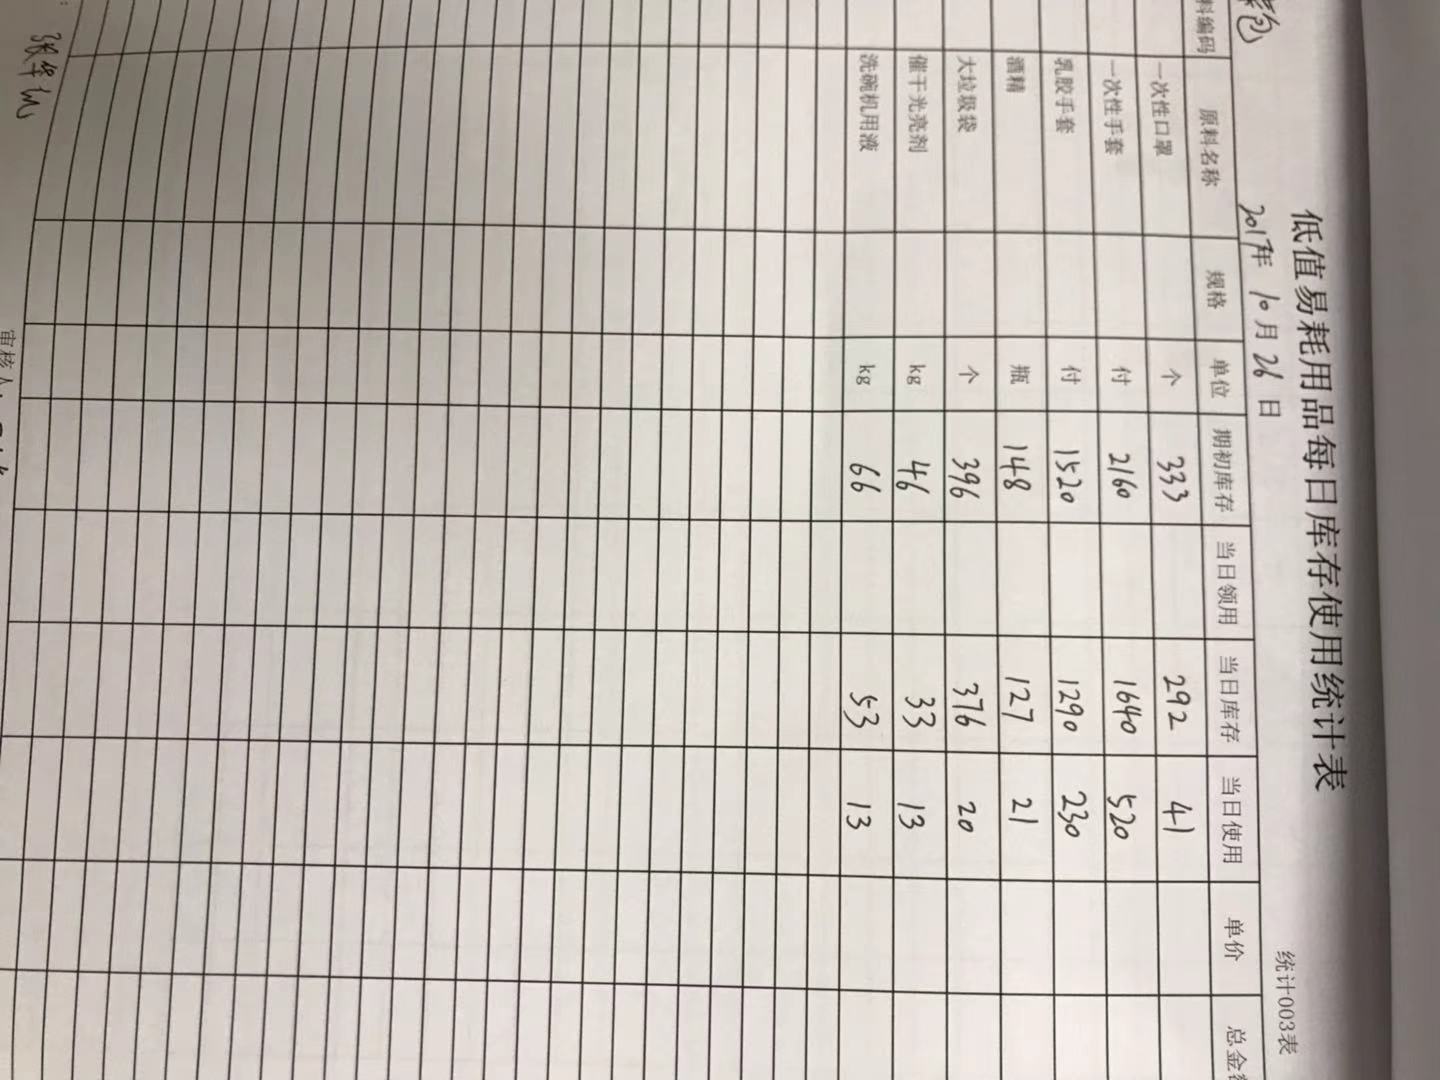 低值易耗用品每日库存使用统计表
统计003表
包 2017年 10月 26日
料编码 原料名称 规格 单位 期初库存 当日领用 当日库存 当日使用 单价 总金
一次性口罩 个 333 292 41
一次性手套 付 2160 1640 520
乳胶手套 付 1520 1290 230
酒精 瓶 148 127 21
大垃圾袋 个 396 376 20
催干光亮剂 kg 46 33 13
洗碗机用液 kg 66 53 13
审核人